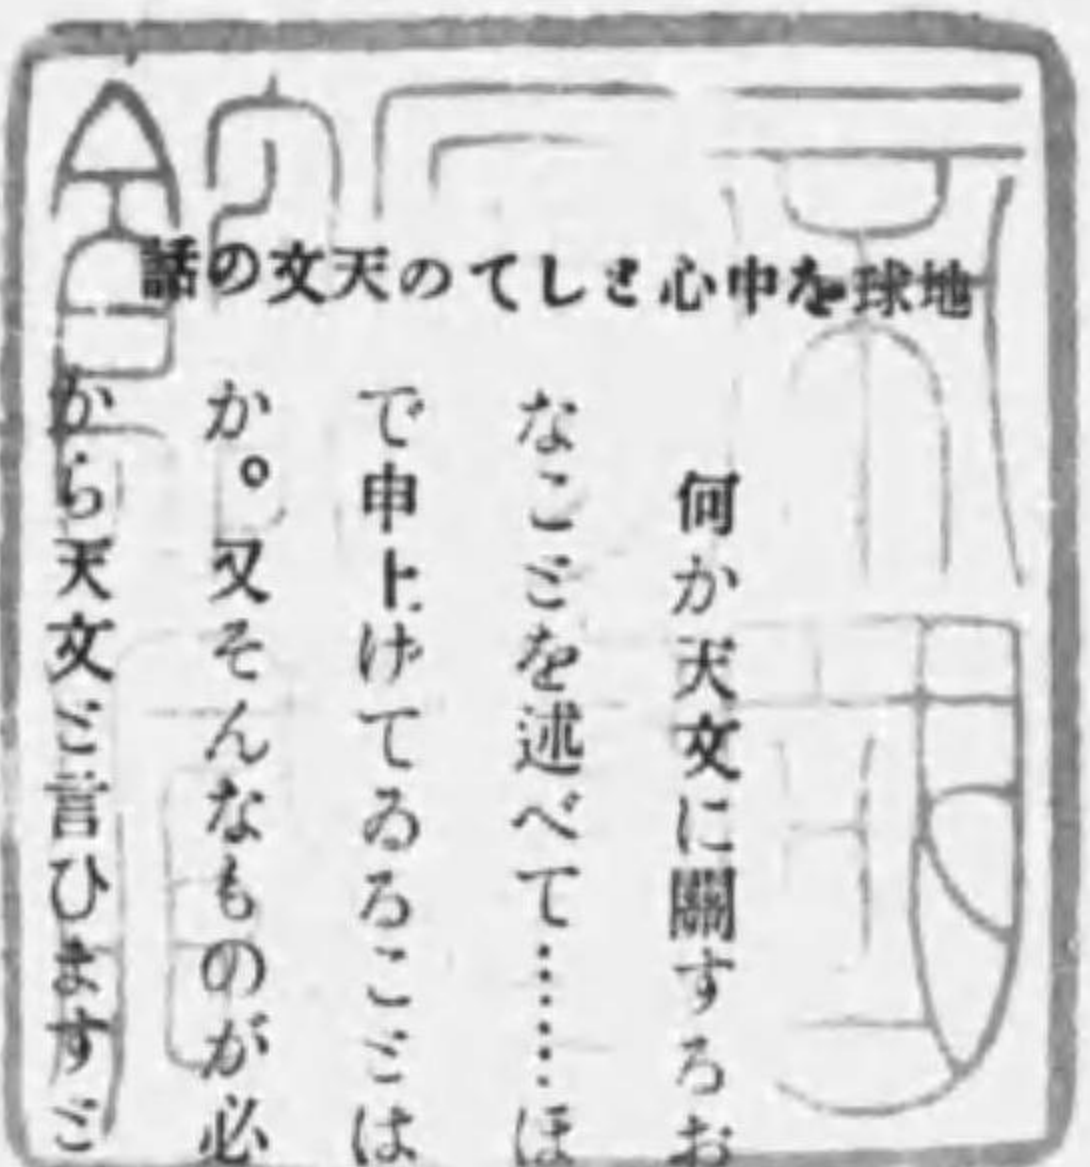 地球を中心としての天文の話
何か天文に關するお
なことを述べて……ほ
で申上げてゐることは
か。又そんなものが必
から天文と言ひますと